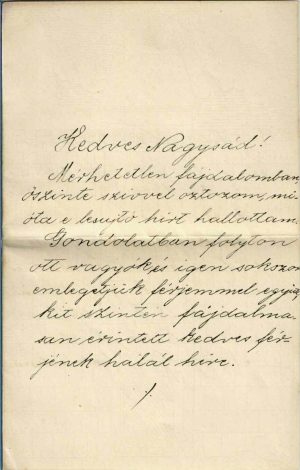 Kedves Nagysád!
Mérhetetlen fájdalomban
őszinte szivvel osztozom, mi-
óta e lesujtó hírt hallottam.
Gondolatban folyton
ott vagyok, és igen sokszor
emlegetjük férjemmel együtt
kit szintén fájdalma-
san érintett kedves fér-
jének halál híre.